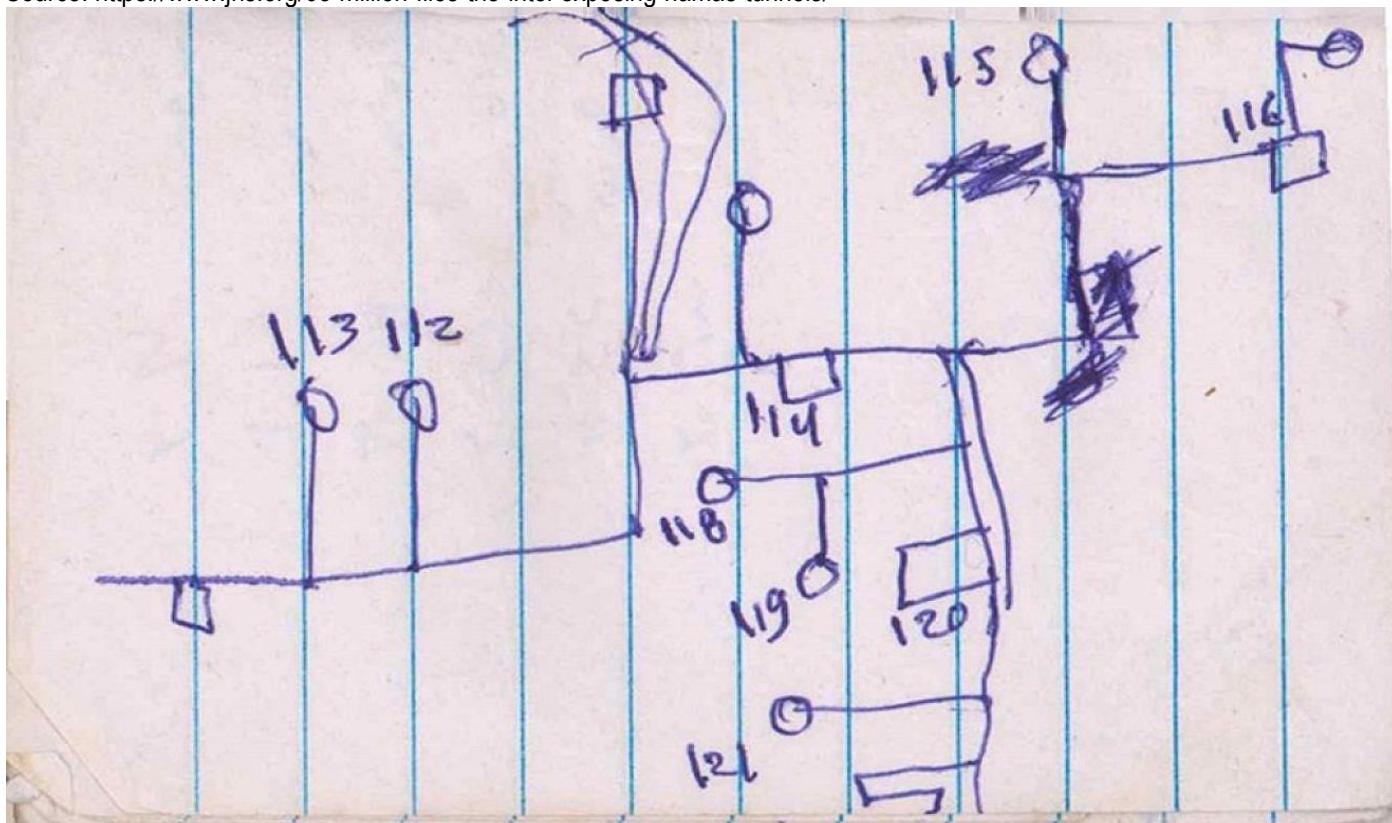 115
116
113 112
114
118
119
120
121